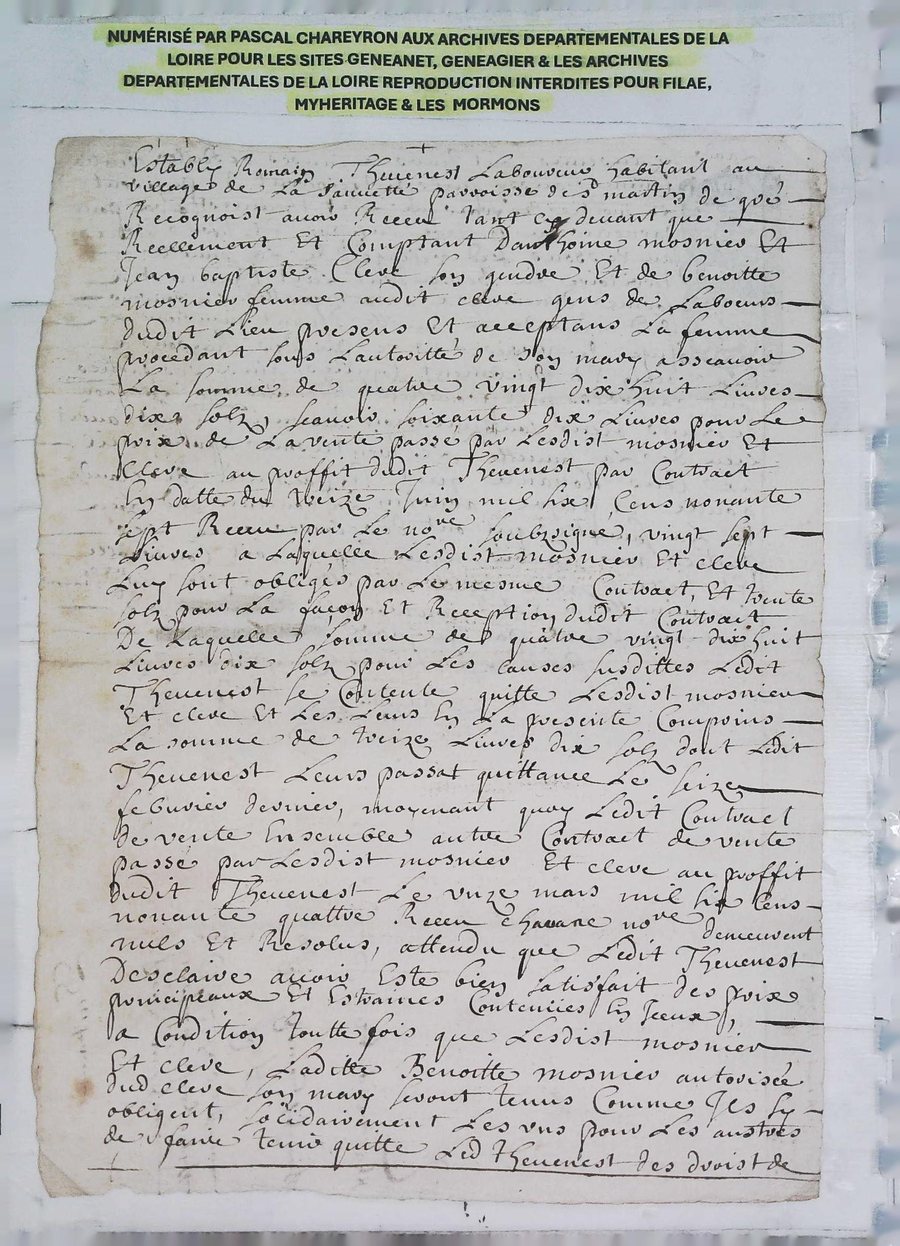 NUMÉRISÉ PAR PASCAL CHAREYRON AUX ARCHIVES DEPARTEMENTALES DE LA
LOIRE POUR LES SITES GENEANET, GENEAGIER & LES ARCHIVES
DEPARTEMENTALES DE LA LOIRE REPRODUCTION INTERDITES POUR FILAE,
MYHERITAGE & LES MORMONS
Estably Romain Theuenest Laboureur habitant au
village de La Sauuette parroisse de St martin de
Recognoist auoir Receu tant cy deuant que
Reellement Et Comptant Danthoine mosnier Et
Jean baptiste Cleve son gendre Et de benoitte
mosnier femme audit cleve gens de Labeurs
dudit Lieu presens Et acceptans La femme
procedant sous Lautoritté de son mary asscauoir
La somme de quatre vingt dix huit Liures
dix solz scauoir soixante dix Liures pour Le
prix de La vente passé par Lesdist mosnier Et
Cleve au proffit dudit Theuenest par Contract
En datte du treize Juin mil six Cens nonante
sept Receu par Le nore soubzsigné, vingt sept
Liures a Laquelle Lesdist mosnier Et cleve
Luy sont obligés par Le mesme Contract, Et trente
solz pour La façon Et Reception dudit Contract
De Laquelle somme de quatre vingt dix huit
Liures dix solz pour Les causes susdittes Ledit
Theuenest se Contente quitte Lesdist mosnier
Et cleve Et Les Leurs En La presente Comprins
La somme de treize Liures dix solz dont Ledit
Theuenest Leurs passat quittance Le seize
feburier dernier, moyenant quoy Ledit Contract
de vente Ensemble autre Contract de vente
passé par Lesdist mosnier Et cleve au proffit
dudit Theuenest Le unze mars mil six Cens
nonante quattre Receu Chauane nore demeurent
nuls Et Resolus, attendu que Ledit Theuenest
Desclaire auoir Esté bien satisfait des prix
principeaux Et Estraines Contenües En Jceux,
a Condition toutte fois que Lesdist mosnier
Et cleve, Laditte Benoitte mosnier autorisée
dud cleve son mary seront tenus Comme Jls sy
obligent, solidairement Les uns pour Les austres
de faire tenir quitte Led theuenest des droist de